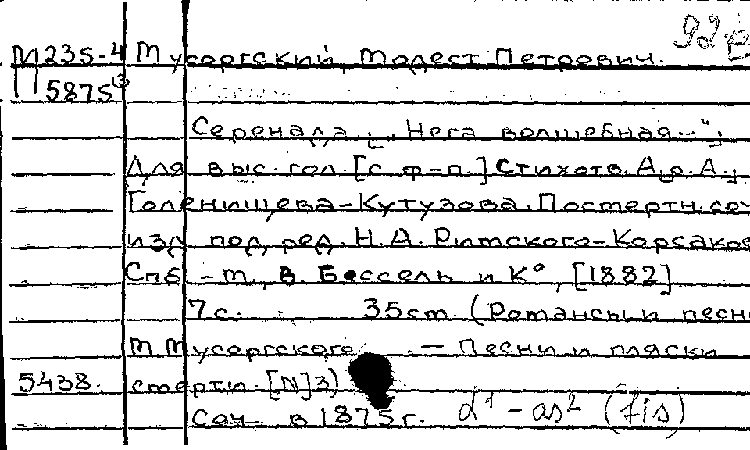 92
М235-4 Мусоргский, Модест Петрович.
5875
Серенада. [„Нега волшебная..."].
Для выс. гол. [с ф-п.] Стихотв. А.
Голенищева-Кутузова. Постертн. соч
изд. под ред. Н. А. Римского-Корсаков
Спб - м, В. Бессель и К°, [1882]
7с. 35ст (Романсы и песн
М Мусоргского — Песни и пляски
5438. смерти. [N]3)
Соч. в 1875г. d¹ - as² (fis)